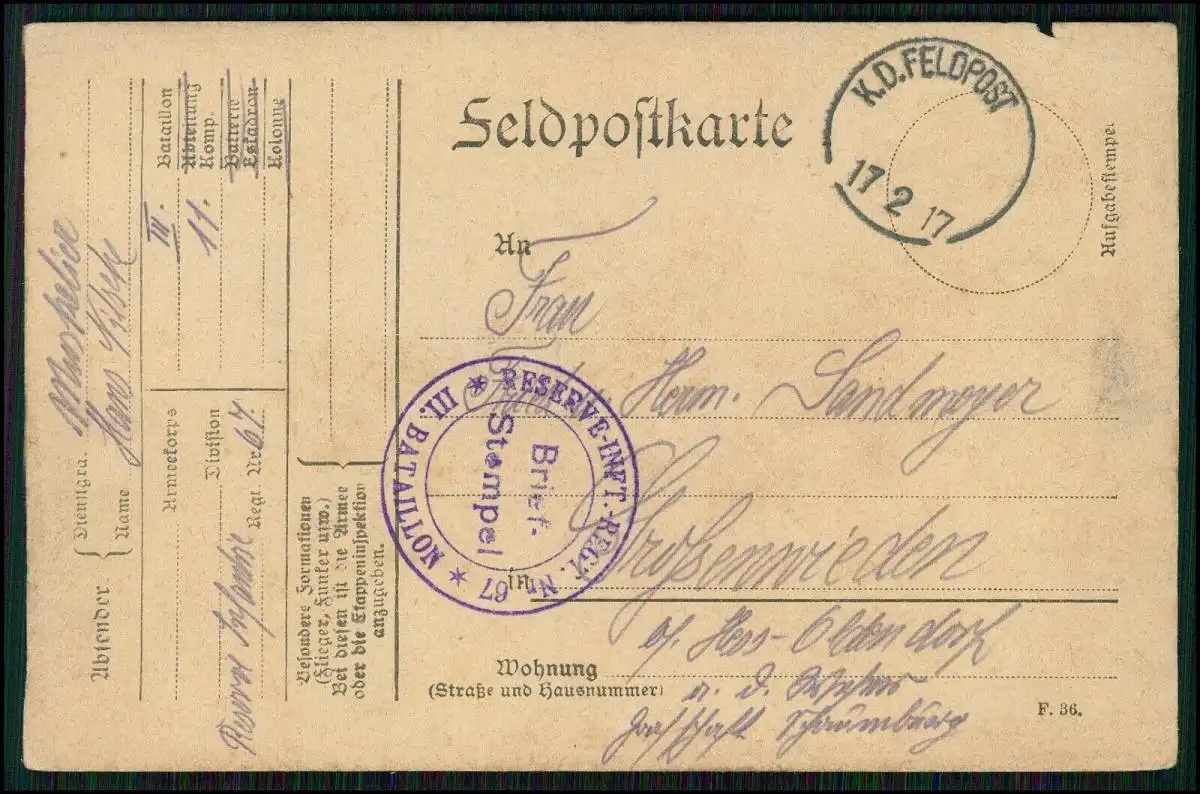 Feldpostkarte
K.D.FELDPOST
17 2 17
Aufgabestempel
An
Frau
Herm. Sandmeyer
in Großenwieden
a/. Hess-Oldendorf
Wohnung
(Straße und Hausnummer)
a. d. Weser
Grafschaft Schaumburg
F. 36.
RESERVE-INFT.-REGT. Nr. 67 * III. BATAILLON *
Brief-
Stempel
Absender
Dienstgra. Musketier
Name Hans
III. Bataillon
Abteilung
11. Komp.
Batterie
Eskadron
Kolonne
Armeekorps
Division
Reserve Infanterie Regt. Nr. 67.
Besondere Formationen
(Flieger, Funker usw.)
Bei diesen ist die Armee
oder die Etappeninspektion
anzugeben.